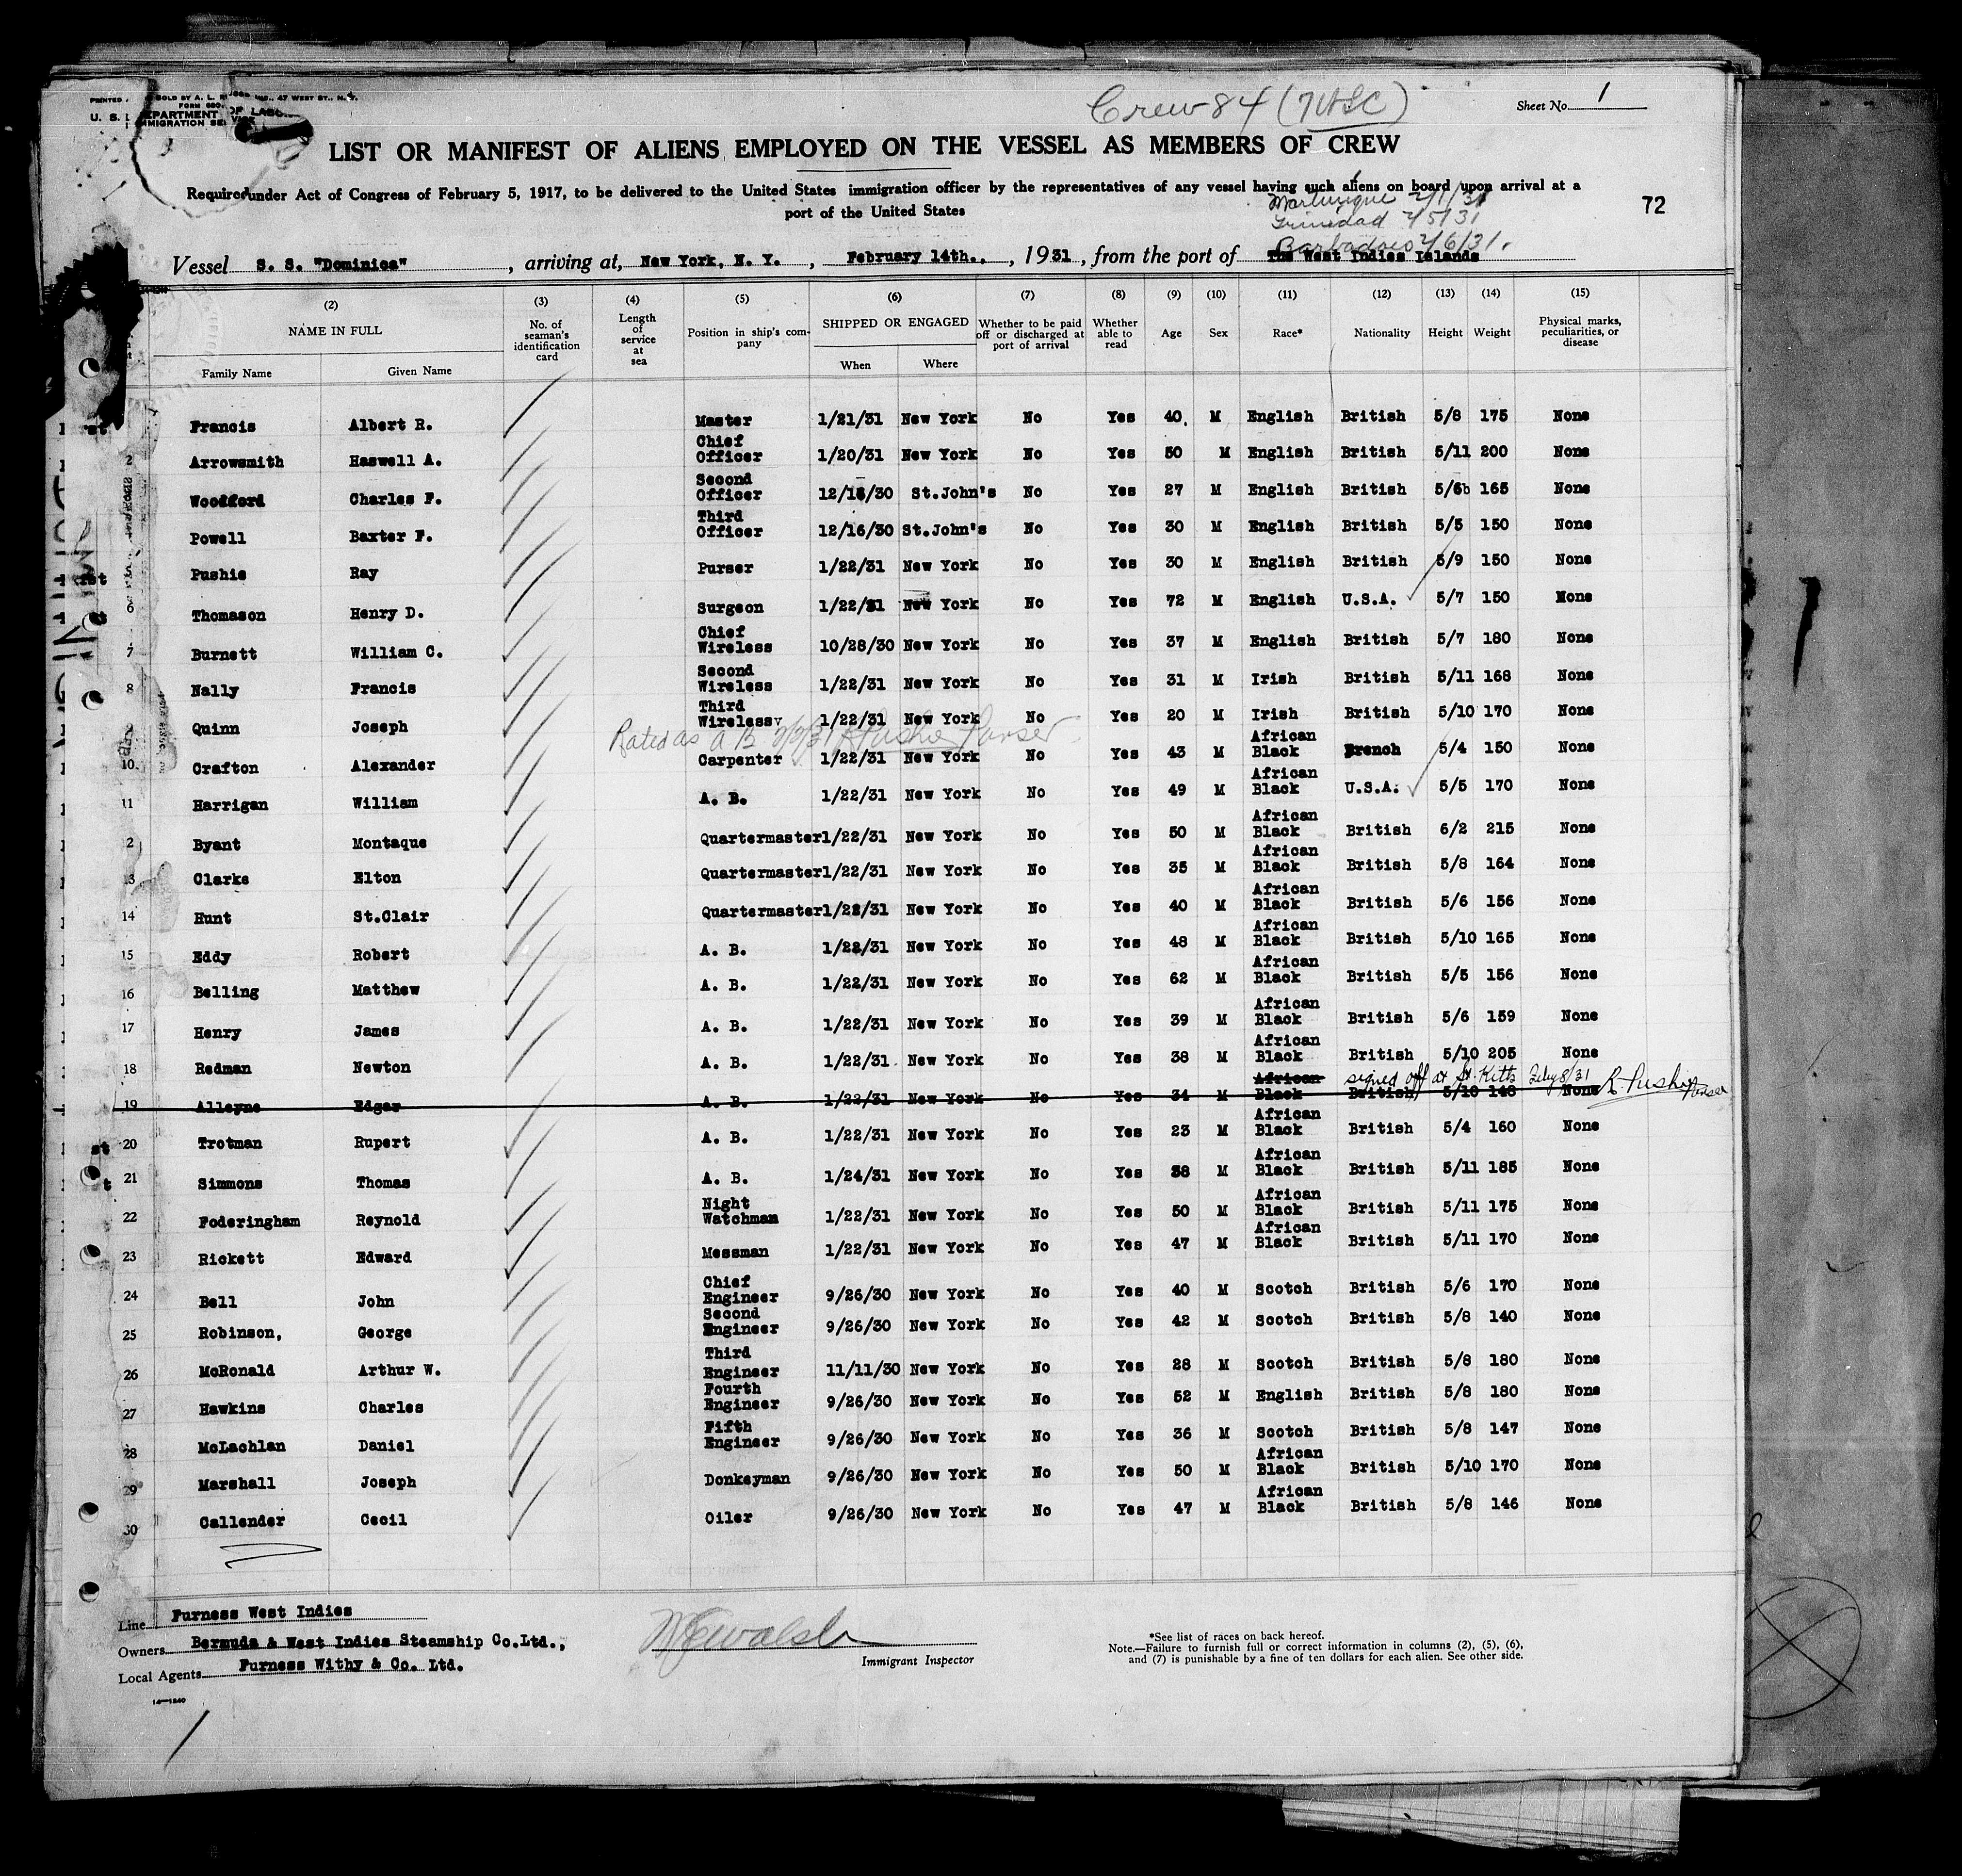 Crew 84
Sheet No. 1
LIST OR MANIFEST OF ALIENS EMPLOYED ON THE VESSEL AS MEMBERS OF CREW
Required under Act of Congress of February 5, 1917, to be delivered to the United States immigration officer by the representatives of any vessel having such aliens on board upon arrival at a
port of the United States
72
Martinique 2/1/31
Trinidad 2/5/31
Barbadoes 2/6/31.
Vessel S. S. "Dominica", arriving at, New York, N. Y., February 14th., 1931, from the port of The West Indies Islands
(2) (3) (4) (5) (6) (7) (8) (9) (10) (11) (12) (13) (14) (15)
NAME IN FULL No. of seaman's identification card Length of service at sea Position in ship's company SHIPPED OR ENGAGED Whether to be paid off or discharged at port of arrival Whether able to read Age Sex Race* Nationality Height Weight Physical marks, peculiarities, or disease
Family Name Given Name When Where
Francis Albert R. Master 1/21/31 New York No Yes 40 M English British 5/8 175 None
2 Arrowsmith Haswell A. Chief Officer 1/20/31 New York No Yes 50 M English British 5/11 200 None
Woodford Charles F. Second Officer 12/16/30 St.John's No Yes 27 M English British 5/6 165 None
Powell Baxter F. Third Officer 12/16/30 St.John's No Yes 30 M English British 5/5 150 None
5 Pushie Ray Purser 1/22/31 New York No Yes 30 M English British 5/9 150 None
6 Thomason Henry D. Surgeon 1/22/31 New York No Yes 72 M English U.S.A. 5/7 150 None
7 Burnett William C. Chief Wireless 10/28/30 New York No Yes 37 M English British 5/7 180 None
8 Nally Francis Second Wireless 1/22/31 New York No Yes 31 M Irish British 5/11 168 None
9 Quinn Joseph Third Wireless 1/22/31 New York No Yes 20 M Irish British 5/10 170 None
Rated as A B R Pushie Purser
10 Crafton Alexander Carpenter 1/22/31 New York No Yes 43 M African Black French 5/4 150 None
11 Harrigan William A. B. 1/22/31 New York No Yes 49 M African Black U.S.A. 5/5 170 None
12 Byant Montaque Quartermaster 1/22/31 New York No Yes 50 M African Black British 6/2 215 None
13 Clarke Elton Quartermaster 1/22/31 New York No Yes 35 M African Black British 5/8 164 None
14 Hunt St.Clair Quartermaster 1/22/31 New York No Yes 40 M African Black British 5/6 156 None
15 Eddy Robert A. B. 1/22/31 New York No Yes 48 M African Black British 5/10 165 None
16 Belling Matthew A. B. 1/22/31 New York No Yes 62 M African Black British 5/5 156 None
17 Henry James A. B. 1/22/31 New York No Yes 39 M African Black British 5/6 159 None
18 Redman Newton A. B. 1/22/31 New York No Yes 38 M African Black British 5/10 205 None
signed off at St. Kitts Feby 8/31 R. Pushie Purser
19 Alleyne Edgar A. B. 1/22/31 New York No Yes 34 M African Black British 5/10 148 None
20 Trotman Rupert A. B. 1/22/31 New York No Yes 23 M African Black British 5/4 160 None
21 Simmons Thomas A. B. 1/24/31 New York No Yes 38 M African Black British 5/11 185 None
22 Foderingham Reynold Night Watchman 1/22/31 New York No Yes 50 M African Black British 5/11 175 None
23 Rickett Edward Messman 1/22/31 New York No Yes 47 M African Black British 5/11 170 None
24 Bell John Chief Engineer 9/26/30 New York No Yes 40 M Scotch British 5/6 170 None
25 Robinson, George Second Engineer 9/26/30 New York No Yes 42 M Scotch British 5/8 140 None
26 McRonald Arthur W. Third Engineer 11/11/30 New York No Yes 28 M Scotch British 5/8 180 None
27 Hawkins Charles Fourth Engineer 9/26/30 New York No Yes 52 M English British 5/8 180 None
28 McLachlan Daniel Fifth Engineer 9/26/30 New York No Yes 36 M Scotch British 5/8 147 None
29 Marshall Joseph Donkeyman 9/26/30 New York No Yes 50 M African Black British 5/10 170 None
30 Callender Cecil Oiler 9/26/30 New York No Yes 47 M African Black British 5/8 146 None
Line Furness West Indies
Owners Bermuda & West Indies Steamship Co.Ltd.,
Local Agents Furness Withy & Co. Ltd.
14—1240
Walsh
Immigrant Inspector
*See list of races on back hereof.
Note.—Failure to furnish full or correct information in columns (2), (5), (6),
and (7) is punishable by a fine of ten dollars for each alien. See other side.